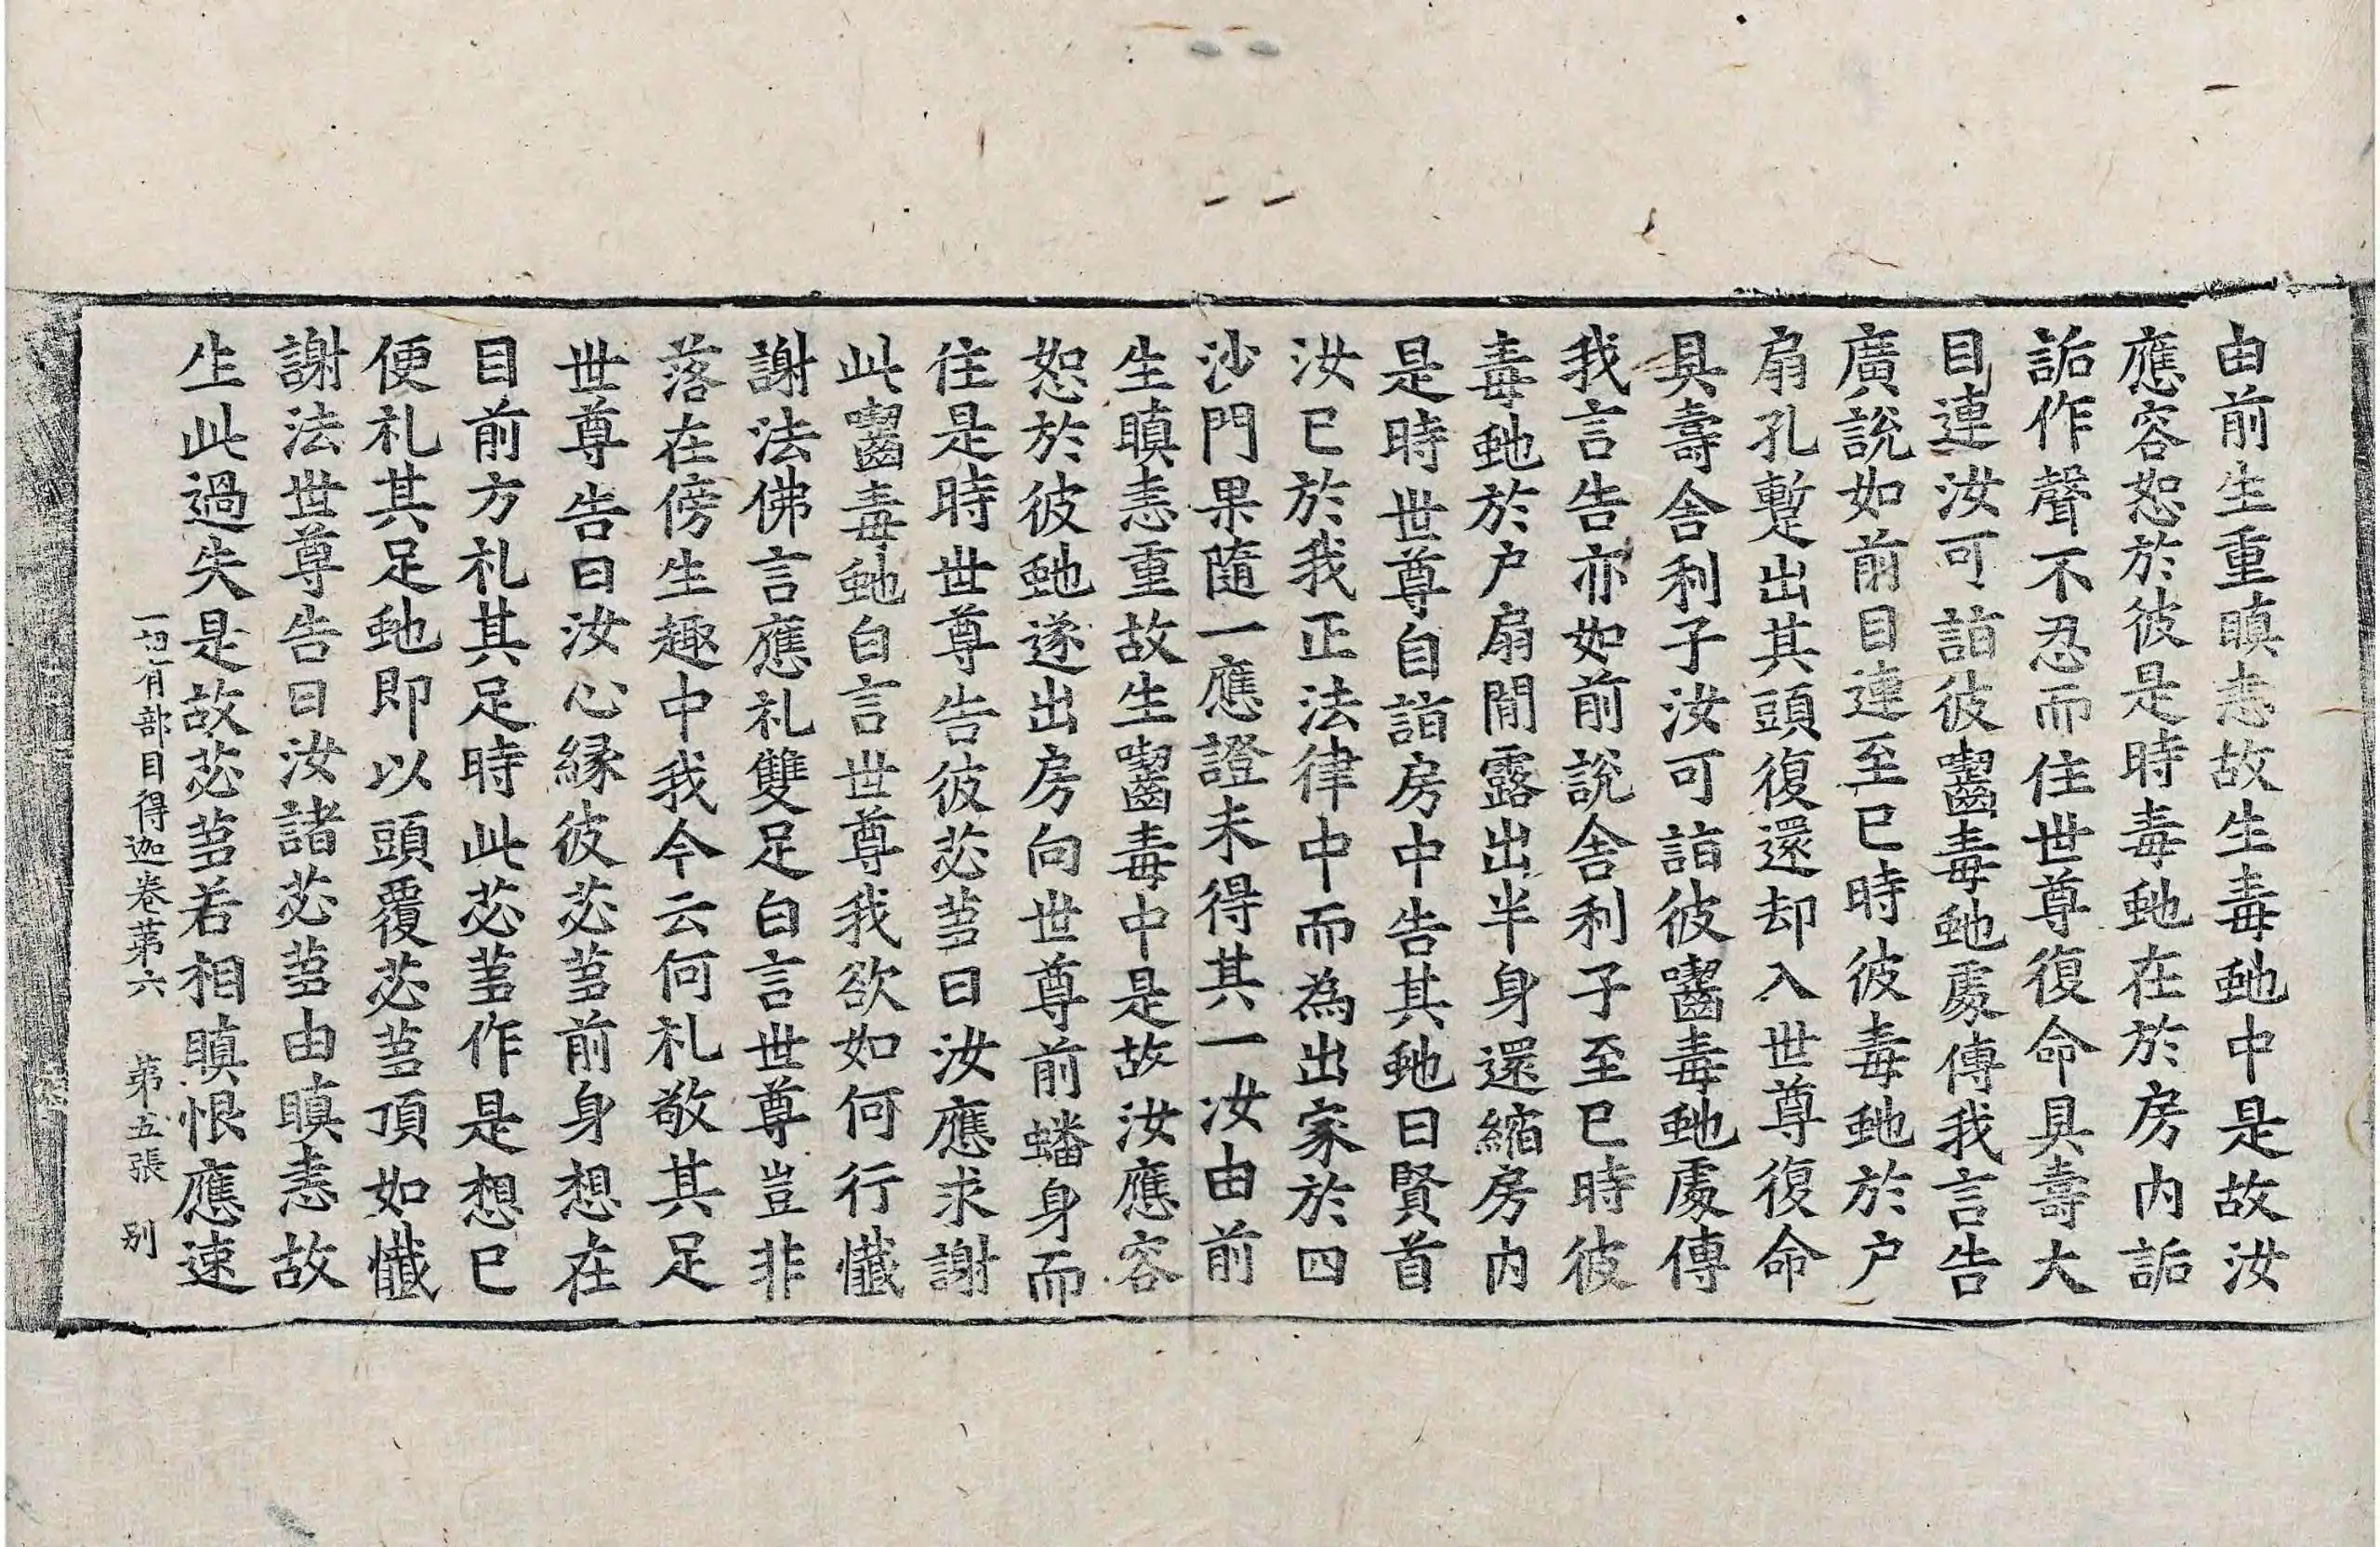 由前生重瞋恚故生毒虵中是故汝
應容恕於彼是時毒虵在於房内詬
詬作聲不忍而住世尊復命具壽大
目連汝可詣彼齧毒虵處傳我言告
廣說如前目連至已時彼毒虵於户
扇孔蹔出其頭復還却入世尊復命
具壽舍利子汝可詣彼齧毒虵處傳
我言告亦如前說舍利子至已時彼
毒虵於户扇閒露出半身還縮房内
是時世尊自詣房中告其虵曰賢首
汝已於我正法律中而為出家於四
沙門果隨一應證未得其一汝由前
生瞋恚重故生齧毒中是故汝應容
恕於彼虵遂出房向世尊前蟠身而
住是時世尊告彼苾芻曰汝應求謝
此齧毒虵白言世尊我欲如何行懺
謝法佛言應礼雙足白言世尊豈非
落在傍生趣中我今云何礼敬其足
世尊告曰汝心緣彼苾芻前身想在
目前方礼其足時此苾芻作是想已
便礼其足虵即以頭覆苾芻頂如懺
謝法世尊告曰汝諸苾芻由瞋恚故
生此過失是故苾芻若相瞋恨應速
一切有部目得迦卷苐六 苐五張 别